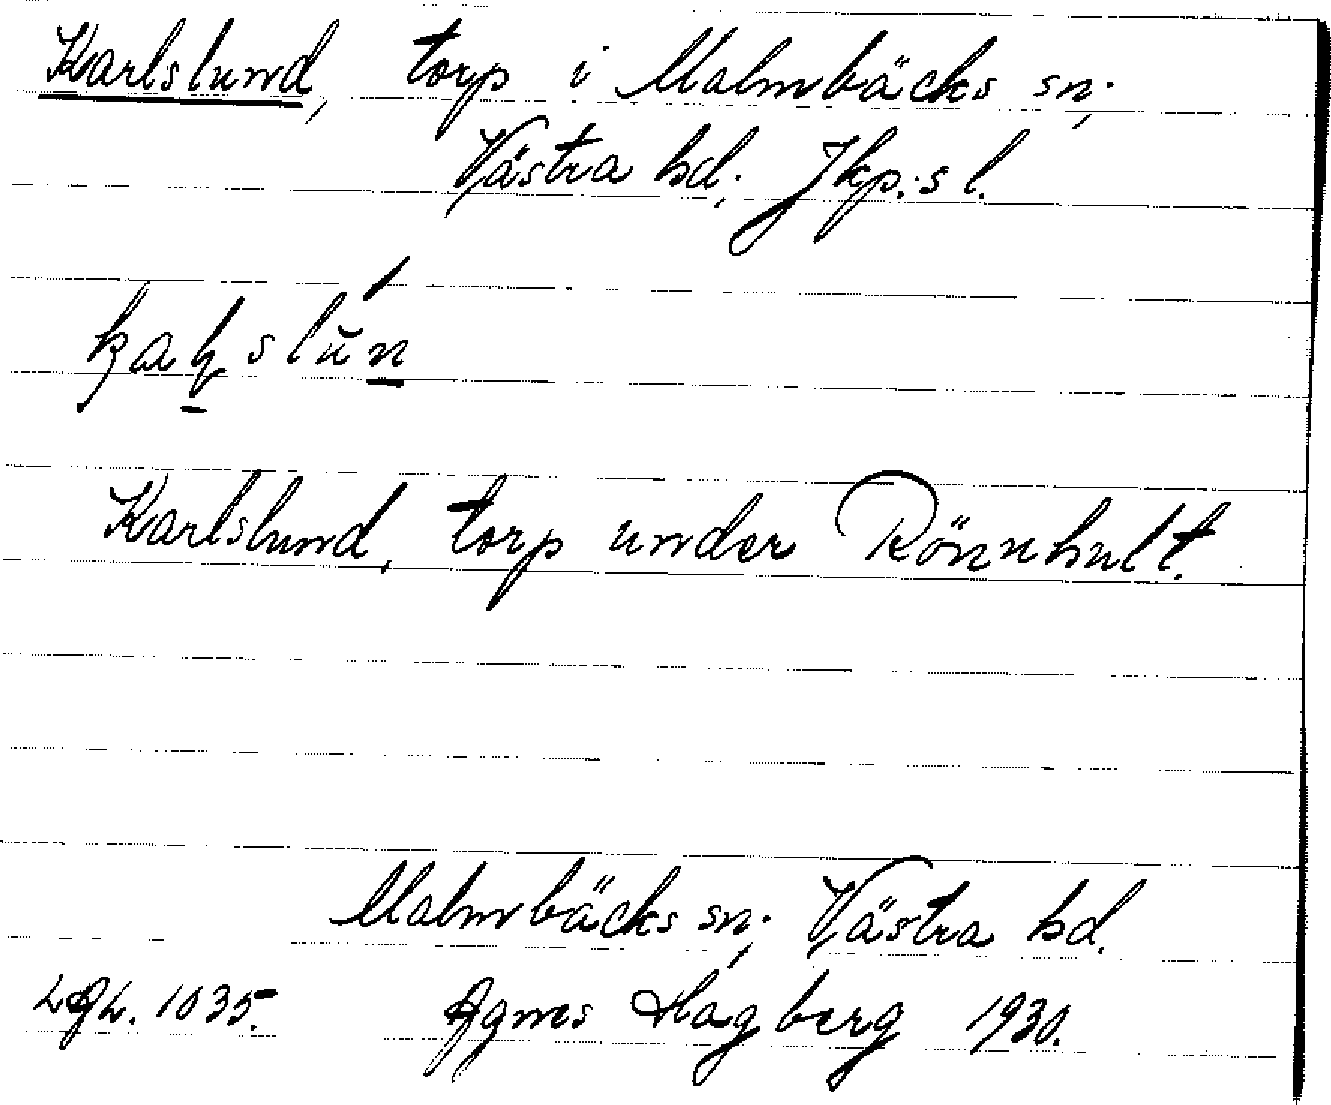 Karlslund, torp i Malmbäcks sn;
Västra hd; Jkp:s l.
Karlslund, torp under Rönnhult.
Malmbäcks sn; Västra hd.
1035. Agnes Hagberg 1930.